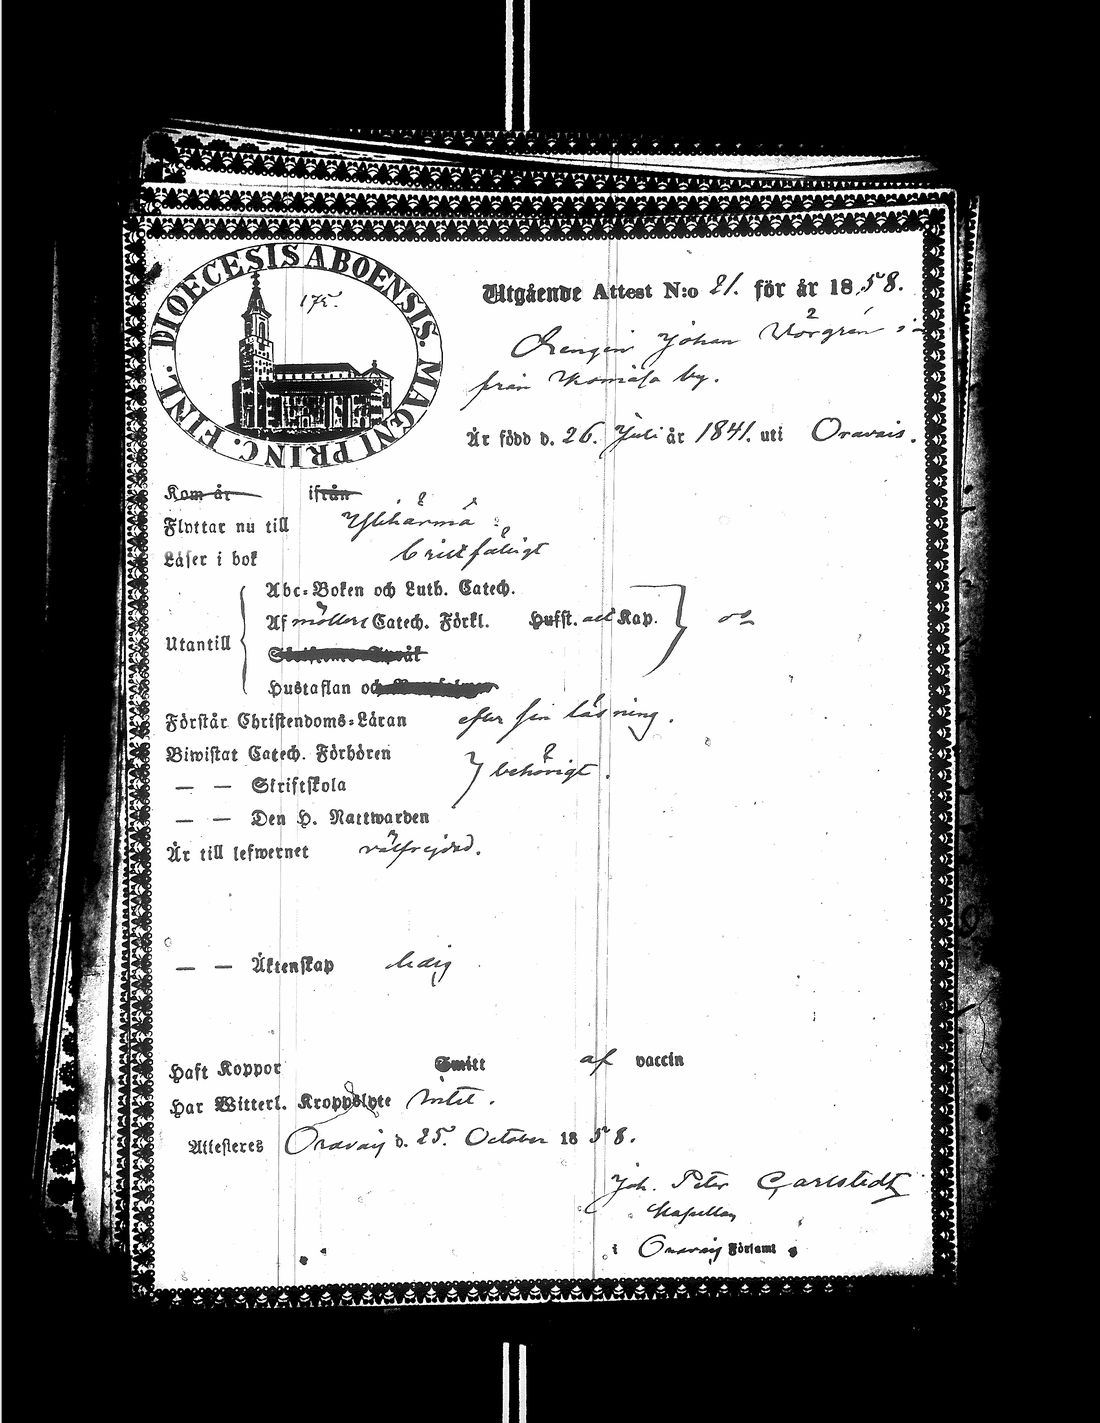 DIOECESIS ABOENSIS. MAGNI PRINC. FINL.
175.
Utgående Attest N:o 21. för år 1858.
Drengen Johan Vörgrén
från Komåsa by.
Är född d. 26. Juli år 1841. uti Oravais.
Kom år ifrån
Flyttar nu till Ylihärmä
Läser i bok bristfäligt
Abc-Boken och Luth. Catech.
Utantill
Af möllers Catech. Förkl. Husst. all Kap.
Skriftenes Språk
Hustaflan och
Förstår Christendoms-Läran efter sin läsning.
Biwistat Catech. Förhören
— — Skriftskola
behörigt.
— — Den H. Nattwarden
Är till lefwernet välfrejdad.
— — Äktenskap ledig
Haft Koppor Smitt af vaccin
Har Witterl. Kroppslyte intet.
Attesteres Oravais d. 25. October 1858.
Joh. Peter Carlstedt
Kapellan
i Oravais Förſamt